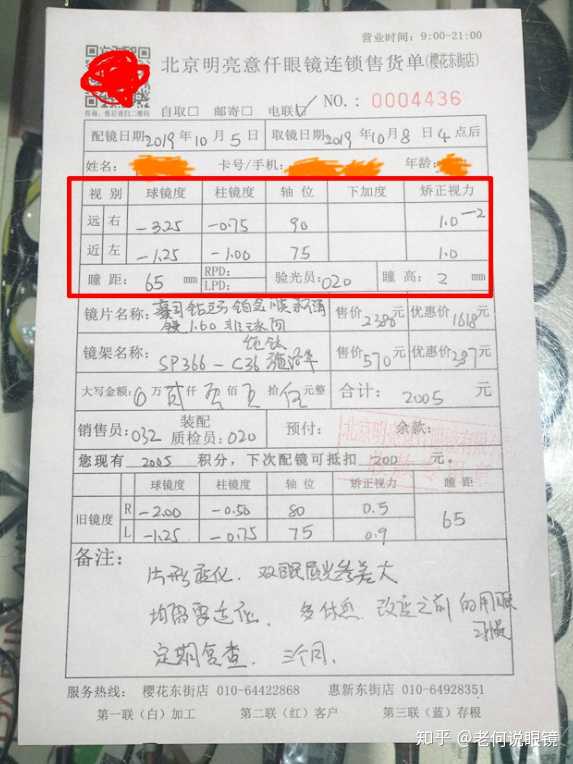 营业时间：9:00-21:00
北京明亮意仟眼镜连锁售货单(樱花东街店)
自取□ 邮寄□ 电联☑ NO.：0004436
配镜日期2019年10月5日 取镜日期2019年10月8日4点后
姓名： 卡号/手机： 年龄：
视别 球镜度 柱镜度 轴位 下加度 矫正视力
远 右 -3.25 -0.75 90 1.0-2
近 左 -1.25 -1.00 75 1.0
瞳距：65mm RPD： LPD： 验光员：020 瞳高：2mm
镜片名称： 售价2386元 优惠价1618元
镜1.60非球面
镜架名称：纯钛 售价570元 优惠价387元
SP366-C36
大写金额：0万贰仟零佰零拾伍元整 合计：2005元
销售员：032 装配质检员：020 预付： 余款：
您现有2005积分，下次配镜可抵扣200元。
球镜度 柱镜度 轴位 矫正视力 瞳距
旧镜度 R -2.00 -0.50 80 0.5 65
L -1.25 -0.75 75 0.9
备注：
片形变化，双眼屈光参差大
均需要适应，多休息，改变之前的用眼习惯
定期复查，三个月。
服务热线：樱花东街店 010-64422868 惠新东街店 010-64928351
第一联（白）加工 第二联（红）客户 第三联（蓝）存根
知乎 @老何说眼镜